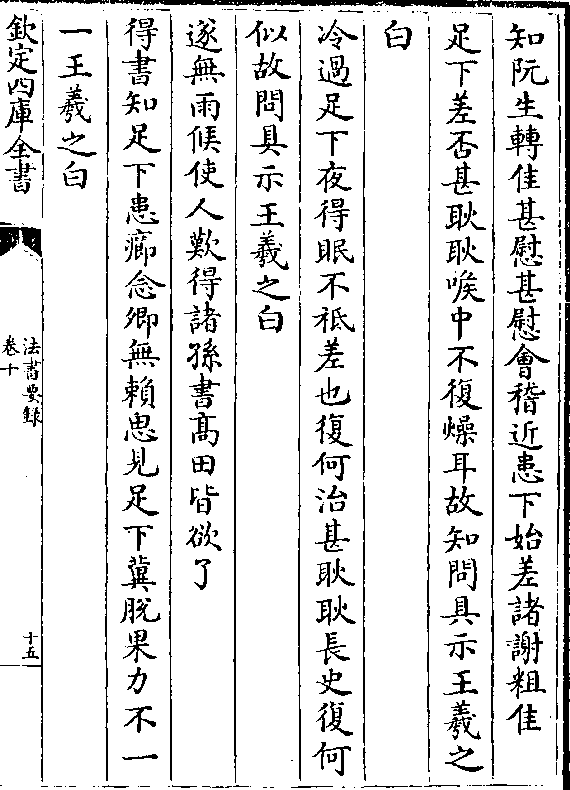 知阮生轉佳甚慰甚慰會稽近患下始差諸謝粗佳
足下差否甚耿耿喉中不復燥耳故知問具示王羲之
白
冷過足下夜得眠不祗差也復何治甚耿耿長史復何
似故問具示王羲之白
遂無雨候使人歎得諸孫書髙田皆欲了
得書知足下患癤念卿無賴思見足下冀脫果力不一
一王羲之白
欽定四庫全書
法書要錄
卷十
十五